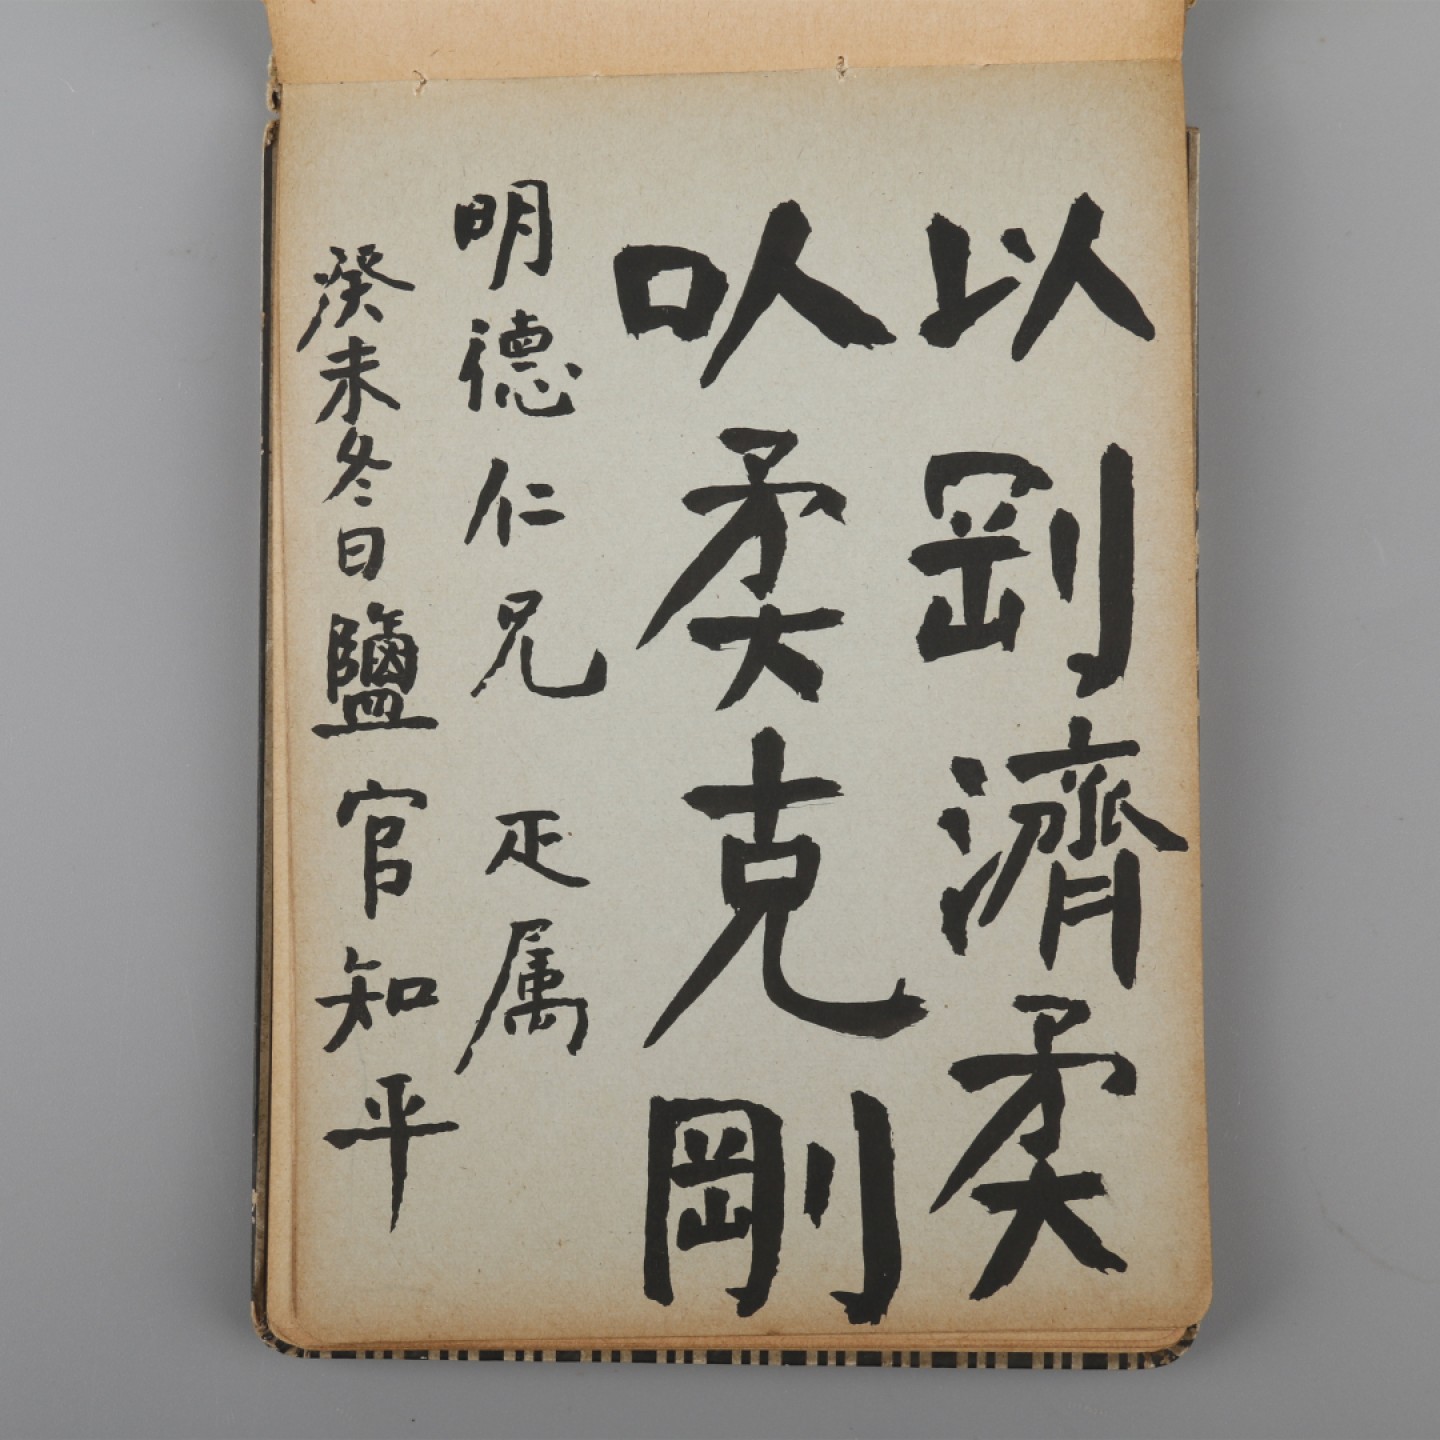 以剛濟柔
㕥柔克剛
明德仁兄 疋属
癸未冬日鹽官知平